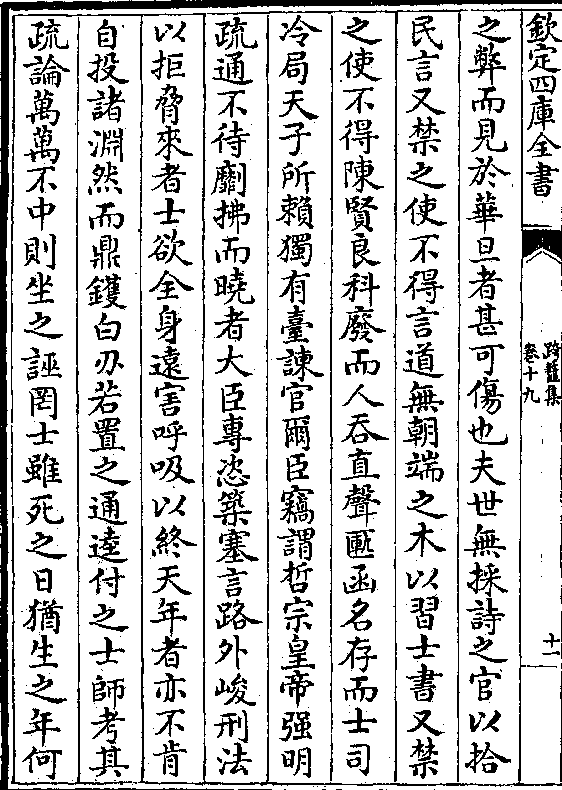 欽定四庫全書
跨鼇集
卷十九
十一
之弊而見於華旦者甚可傷也夫世無採詩之官以拾
民言又禁之使不得言道無朝端之木以習士書又禁
之使不得陳賢良科廢而人吞直聲匭函名存而士司
冷局天子所賴獨有臺諫官爾臣竊謂哲宗皇帝强明
疏通不待劘拂而曉者大臣專恣築塞言路外峻刑法
以拒脅來者士欲全身遠害呼吸以終天年者亦不肯
自投諸淵然而鼎鑊白刃若置之通逵付之士師考其
疏論萬萬不中則坐之誣罔士雖死之日猶生之年何